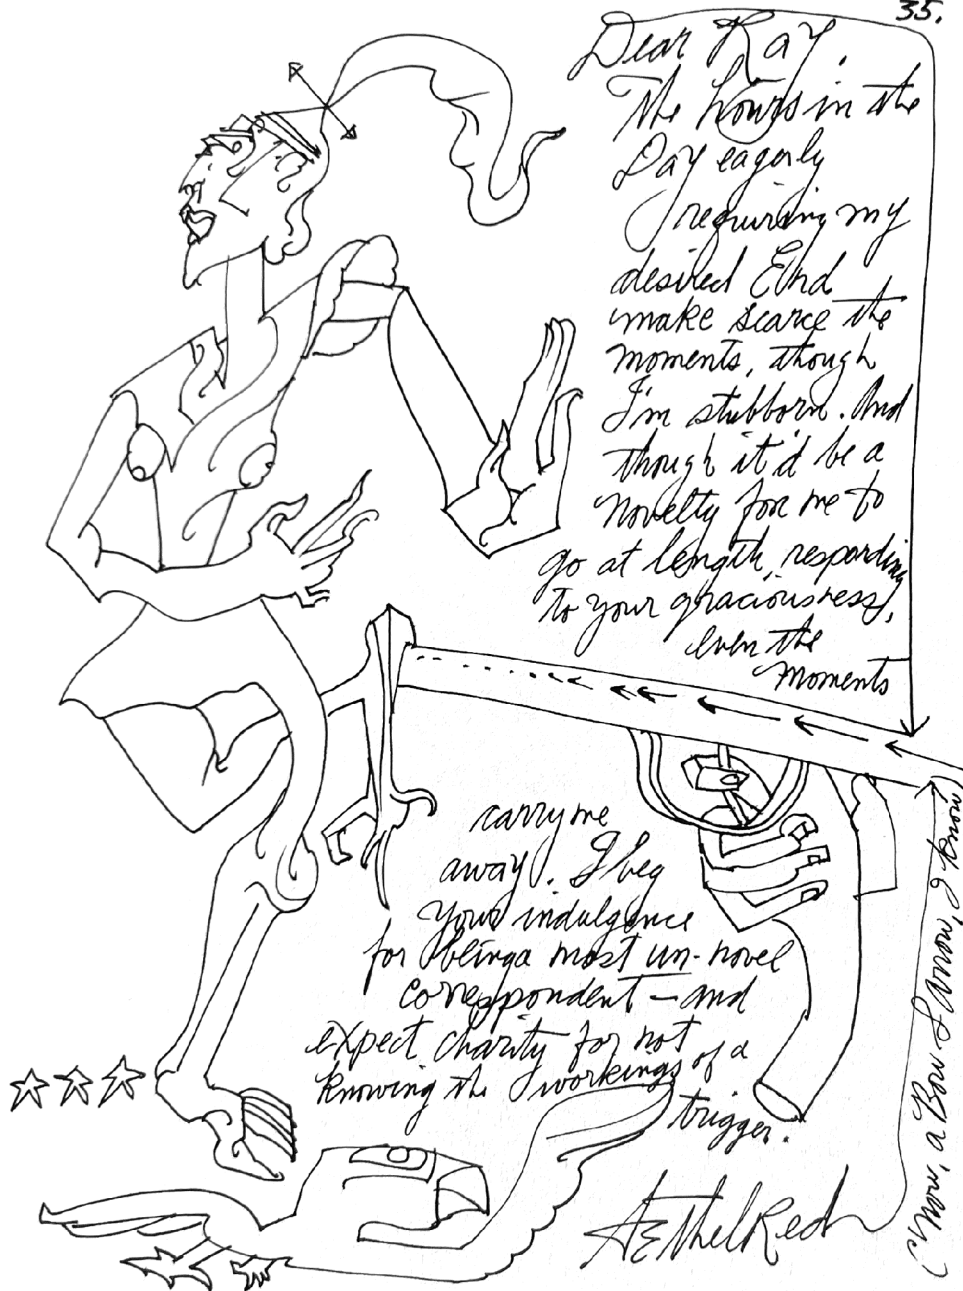 35.
Dear Ray,
The hours in the
Day eagerly
requiring my
desired End
make scarce the
moments, though
I'm stubborn. And
though it'd be a
novelty for me to
go at length, responding
to your graciousness,
even the
moments
carry me
away. I beg
your indulgence
for being a most un-novel
correspondent – and
expect charity for not
knowing the workings of a
trigger.
AEthelRed
(Now, a Bow & Arrow, I know)